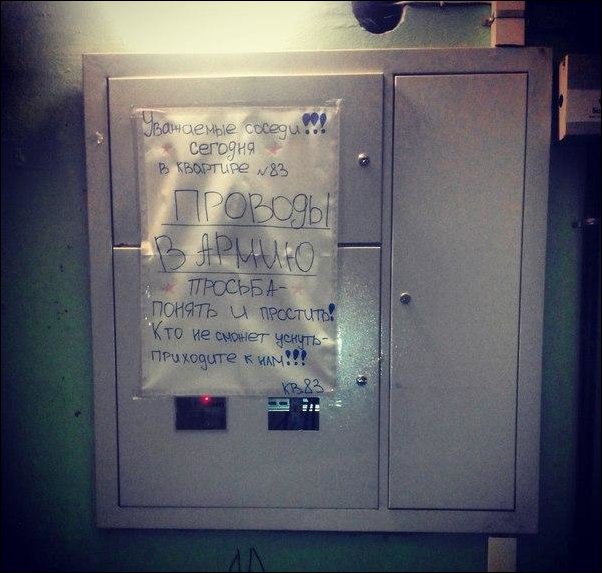 Уважаемые соседи!!!
сегодня
в квартире №83
ПРОВОДЫ
В АРМИЮ
ПРОСЬБА-
ПОНЯТЬ И ПРОСТИТЬ!
Кто не сможет уснуть-
приходите к нам!!!
кв.83